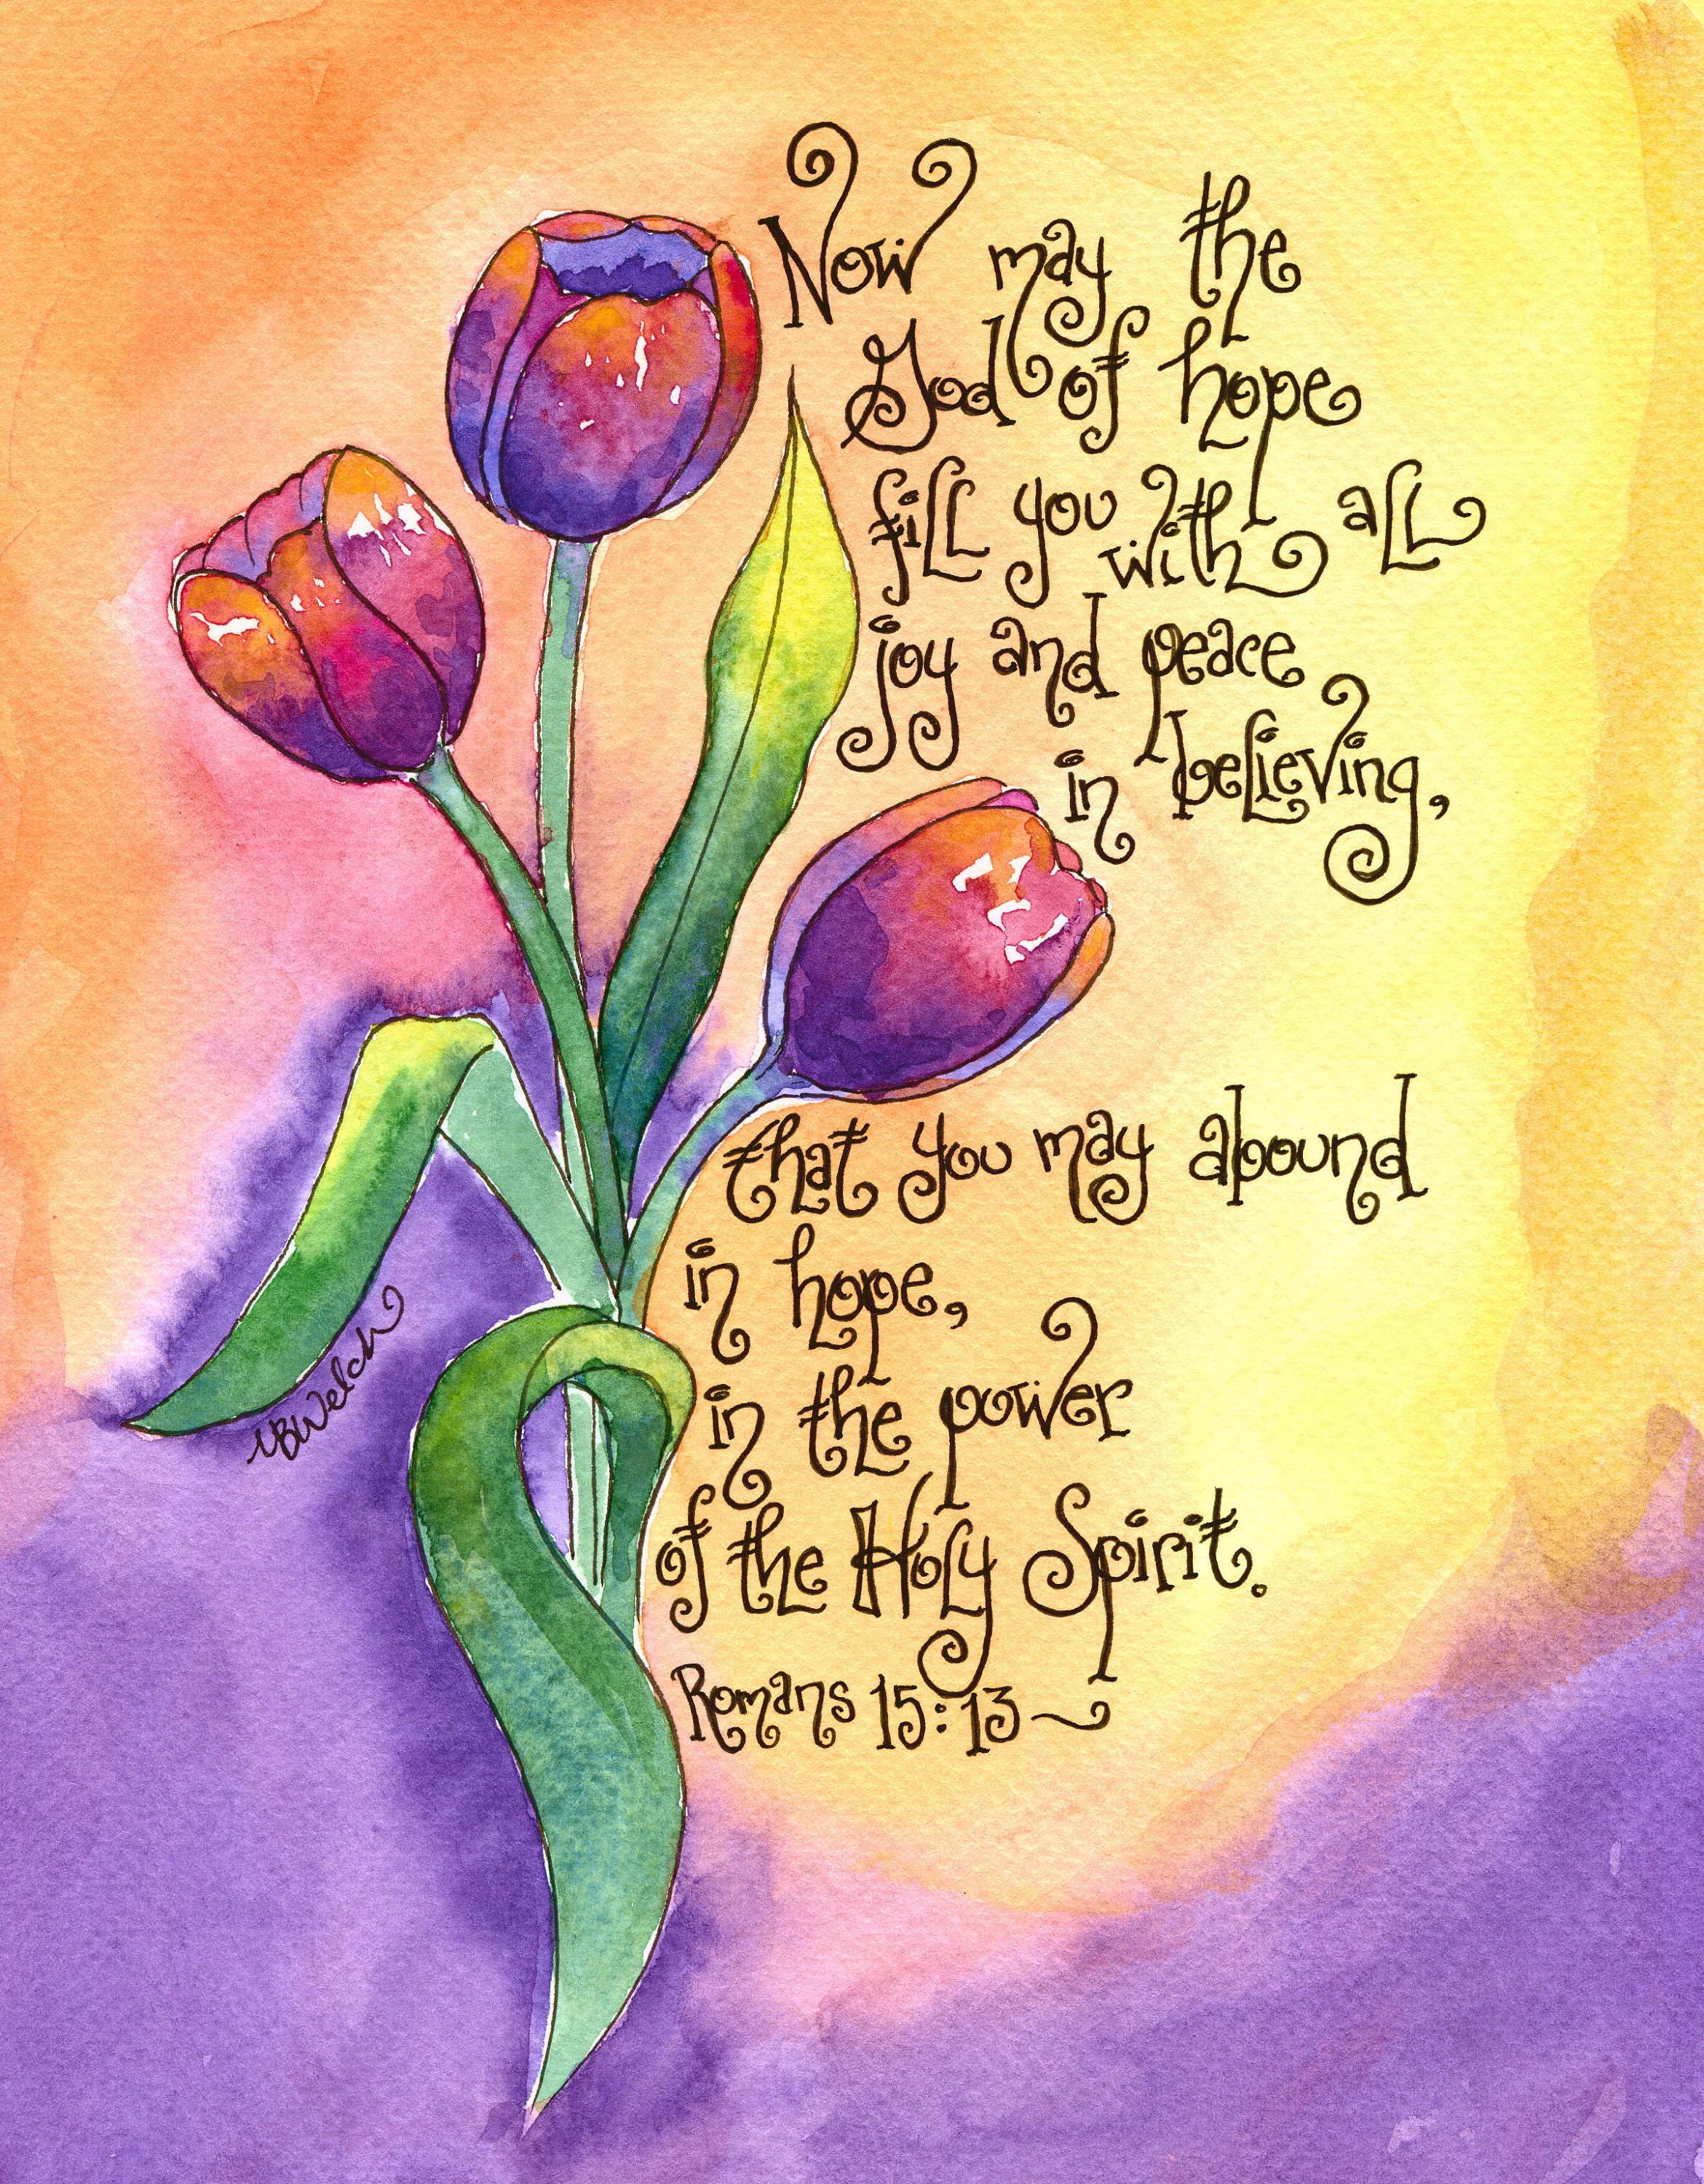 Now may the
God of hope
fill you with all
joy and peace
in believing,
that you may abound
in hope,
in the power
of the Holy Spirit.
Romans 15:13~
MBWelch